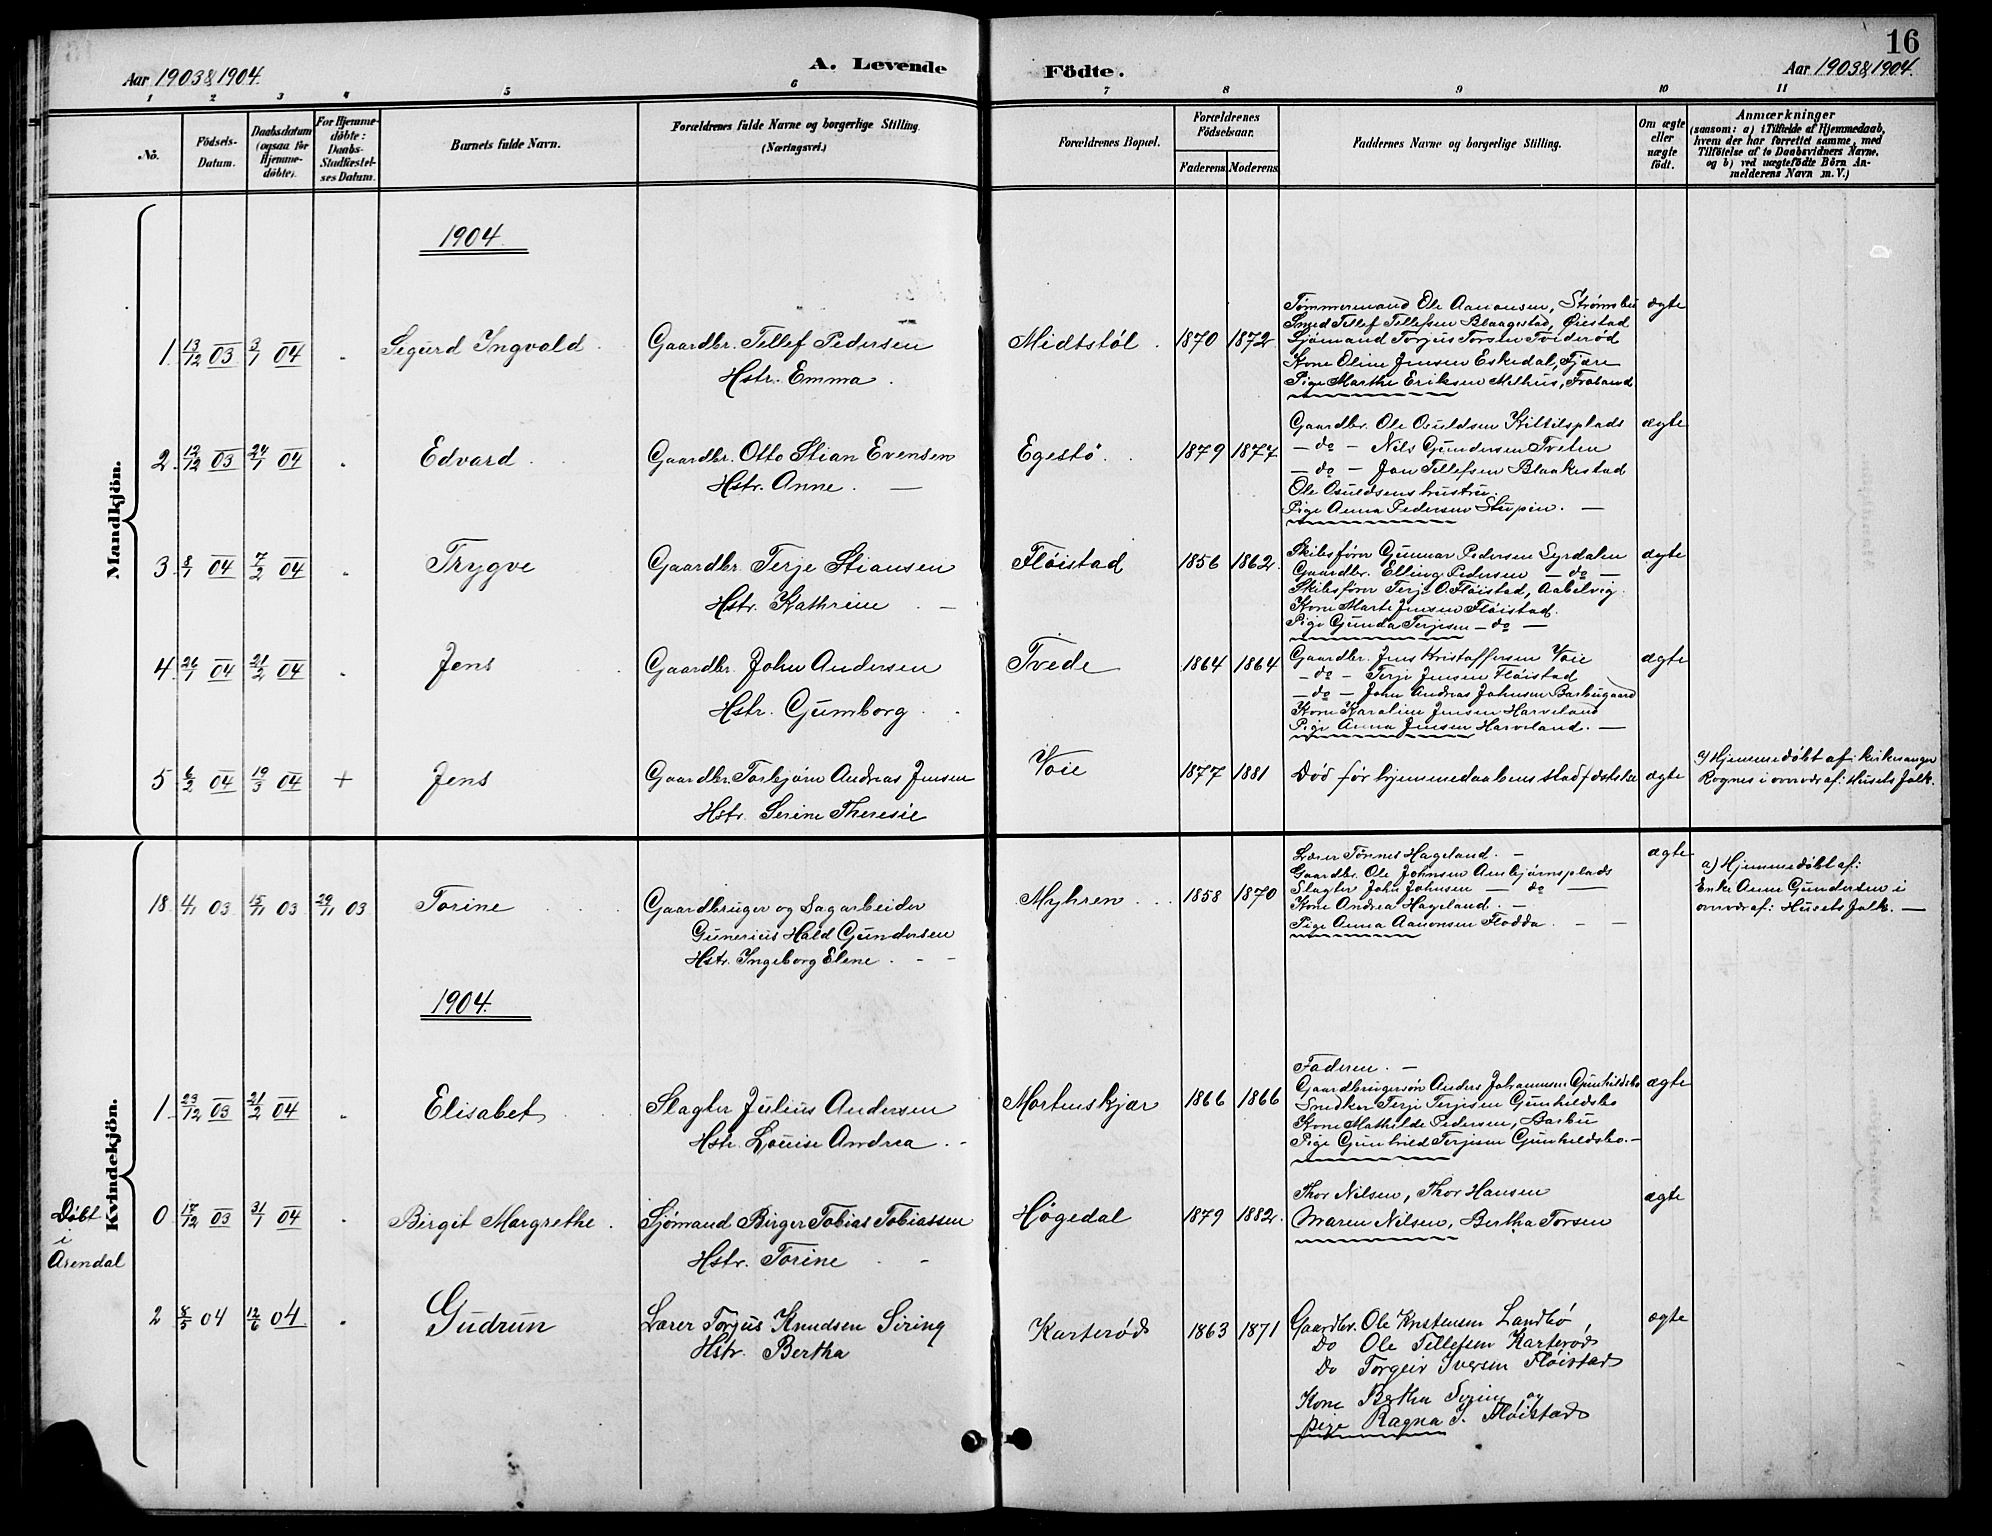 16
Aar 1903 & 1904.
A. Levende Födte.
Aar 1903 & 1904.
1 2 3 4 5 6 7 8 9 10 11
No.
Födsels-Datum.
Daabsdatum (ogsaa for Hjemmedöbte).
For Hjemmedöbte: Daabs-Stadfæstelses Datum.
Barnets fulde Navn.
Forældrenes fulde Navne og borgerlige Stilling. (Næringsvei.)
Forældrenes Bopæl.
Forældrenes Födselsaar.
Faderens. Moderens.
Faddernes Navne og borgerlige Stilling.
Om ægte eller uægte födt.
Anmærkninger
(saasom: a) i Tilfælde af Hjemmedaab, hvem der har forrettet samme, med Tilföielse af to Daabsvidners Navne, og b) ved uægtefödte Börn Anmelderens Navn m. V.)
Mandkjön.
1904.
1. 13/12 03 3/1 04 Sigurd Ingvald. Gaardbr. Tellef Pedersen
Hstr. Emma.
Midtstøl. 1870 1872
Tømmermand Ole Aanonsen, Strømsbu ægte
Smed Tellef Tellefsen Blaagestad, Øiestad
Sjømand Torjus Torsen Tviderød
Kone Oline Jensen Eskedal, Fjære
Pige Marthe Eriksen Melhus, Froland
2. 12/12 03 24/1 04 Edvard. Gaardbr. Otto Stian Evensen
Hstr. Anne. —
Egestø. 1879 1877
Gaardbr. Ole Osuldsen Kittilsplads ægte
— do — Nils Gundersen Tveten
— do — Jan Tellefsen Blaakestad
Ole Osuldsens hustru.
Pige Anna Pedersen Stupen. —
3. 8/1 04 7/2 04 Trygve Gaardbr. Terje Stiansen
Hstr. Kathrine. —
Fløistad 1856 1862.
Skibsfører Gunnar Pedersen Lyrdalen ægte
Gaardbr. Elling Pedersen — do —
Skibsfører Terje O. Fløistad, Aabelvig.
Kone Marte Jensen Fløistad.
Pige Gunda Terjesen — do —
4. 26/1 04 21/2 04 Jens Gaardbr. John Andersen
Hstr. Gumborg.
Tvede 1864 1864
Gaardbr. Jens Kristoffersen Voie ægte
— do — Terje Jensen Fløistad
— do — John Andreas Johnsen Barbugaard
Kone Karoline Jensen Harveland
Pige Anna Jensen Harveland. —
5 6/2 04 19/3 04 + Jens Gaardbr. Torbjørn Andreas Jensen
Hstr. Serine Theresie
Voie 1877 1881 Død før hjemmedaabens stadfæstelse ægte
a) Hjemmedøbt af: Kirkesanger
Rognes i overvær af: Husets Folk.
Kvindekjön.
18 4/11 03 15/11 03 29/11 03 Torine Gaardbruger og Sagarbeider
Gunerius Hald Gundersen
Hstr. Ingeborg Elene.
Myhren. 1858 1870
Lærer Tønnes Hageland. — ægte
Gaardbr. Ole Johnsen Aasbjørnsplads
Slagter John Johnsen — do —
Kone Andrea Hageland. —
Pige Anna Aanonsen Flodda. — —
a) Hjemmedøbt af:
Enke Anne Gundersen i
overvær af: Husets Folk. —
1904.
1. 23/12 03 21/2 04 Elisabet Slagter Julius Andersen
Hstr. Louise Andrea.
Mortenskjær 1866 1866
Faderen. —
Gaardbrugersøn Anders Johannesen Gunhildsbo ægte
Snedker Terje Terjesen Gunhildsbo
Kone Mathilde Pedersen, Barbu
Pige Gunhild Terjesen Gunhildsbo. —
Døbt
i
Arendal
0 17/12 03 31/1 04 Birgit Margrethe. Sjømand Birger Tobias Tobiassen
Hstr. Torine
Høgedal 1879 1882.
Thor Nilsen, Thor Hansen ægte
Maren Nilsen, Bertha Torsen
2 8/5 04 12/6 04 Gudrun Lærer Torjus Knudsen Siring
Hstr. Bertha
Karterød 1863 1871
Gaardbr. Ole Kristensen Landbø ægte
Do Ole Tellefsen Karterød
Do Torgeir Iversen Fløistad
Kone Bertha og
pige Ragna I. Fløistad